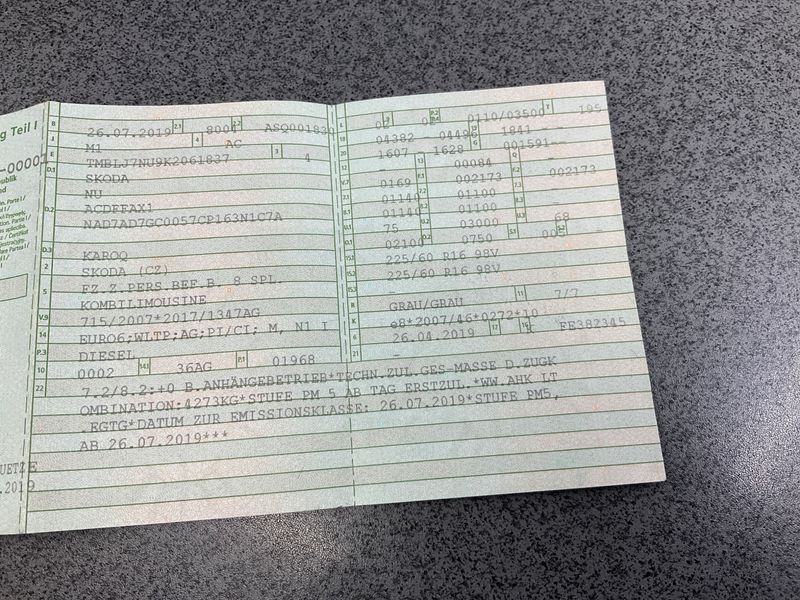 g Teil I
B 26.07.2019 2.1 8004 2.2 ASQ001830
J M1 4 AC
E TMBLJ7NU9K2061837 3 4
D.1 SKODA
NU
D.2 ACDFFAX1
NAD7AD7GC0057CP163N1C7A
D.3 KAROQ
2 SKODA (CZ)
5 FZ.Z.PERS.BEF.B. 8 SPL.
KOMBILIMOUSINE
V.9 715/2007*2017/1347AG
14 EURO6;WLTP;AG;PI/CI; M, N1 I
P.3 DIESEL
10 0002 14.1 36AG P.1 01968
L 02 9 P.2 P.4 0110/03500 T 195
18 04382 19 20 1841 --
12 1607 1628 G 001591 --
13 00084 Q
V.7 0169 F.1 002173 F.2 002173
7.1 01140 7.2 01100
8.1 01140 8.2 01100
U.1 75 U.2 03000 U.3 68
O.1 02100 O.2 0750 S.1 S.2
15.1 225/60 R16 98V
15.2 225/60 R16 98V
15.3
R GRAU/GRAU 11 7/7
K e8*2007/46*0272*10
6 26.04.2019 17 16 FE382345
21
22 7.2/8.2:+0 B.ANHÄNGEBETRIEB*TECHN.ZUL.GES-MASSE D.ZUGK
OMBINATION:4273KG*STUFE PM 5 AB TAG ERSTZUL.*WW.AHK LT
.EGTG*DATUM ZUR EMISSIONSKLASSE: 26.07.2019*STUFE PM5,
AB 26.07.2019***
UETZE
.2019